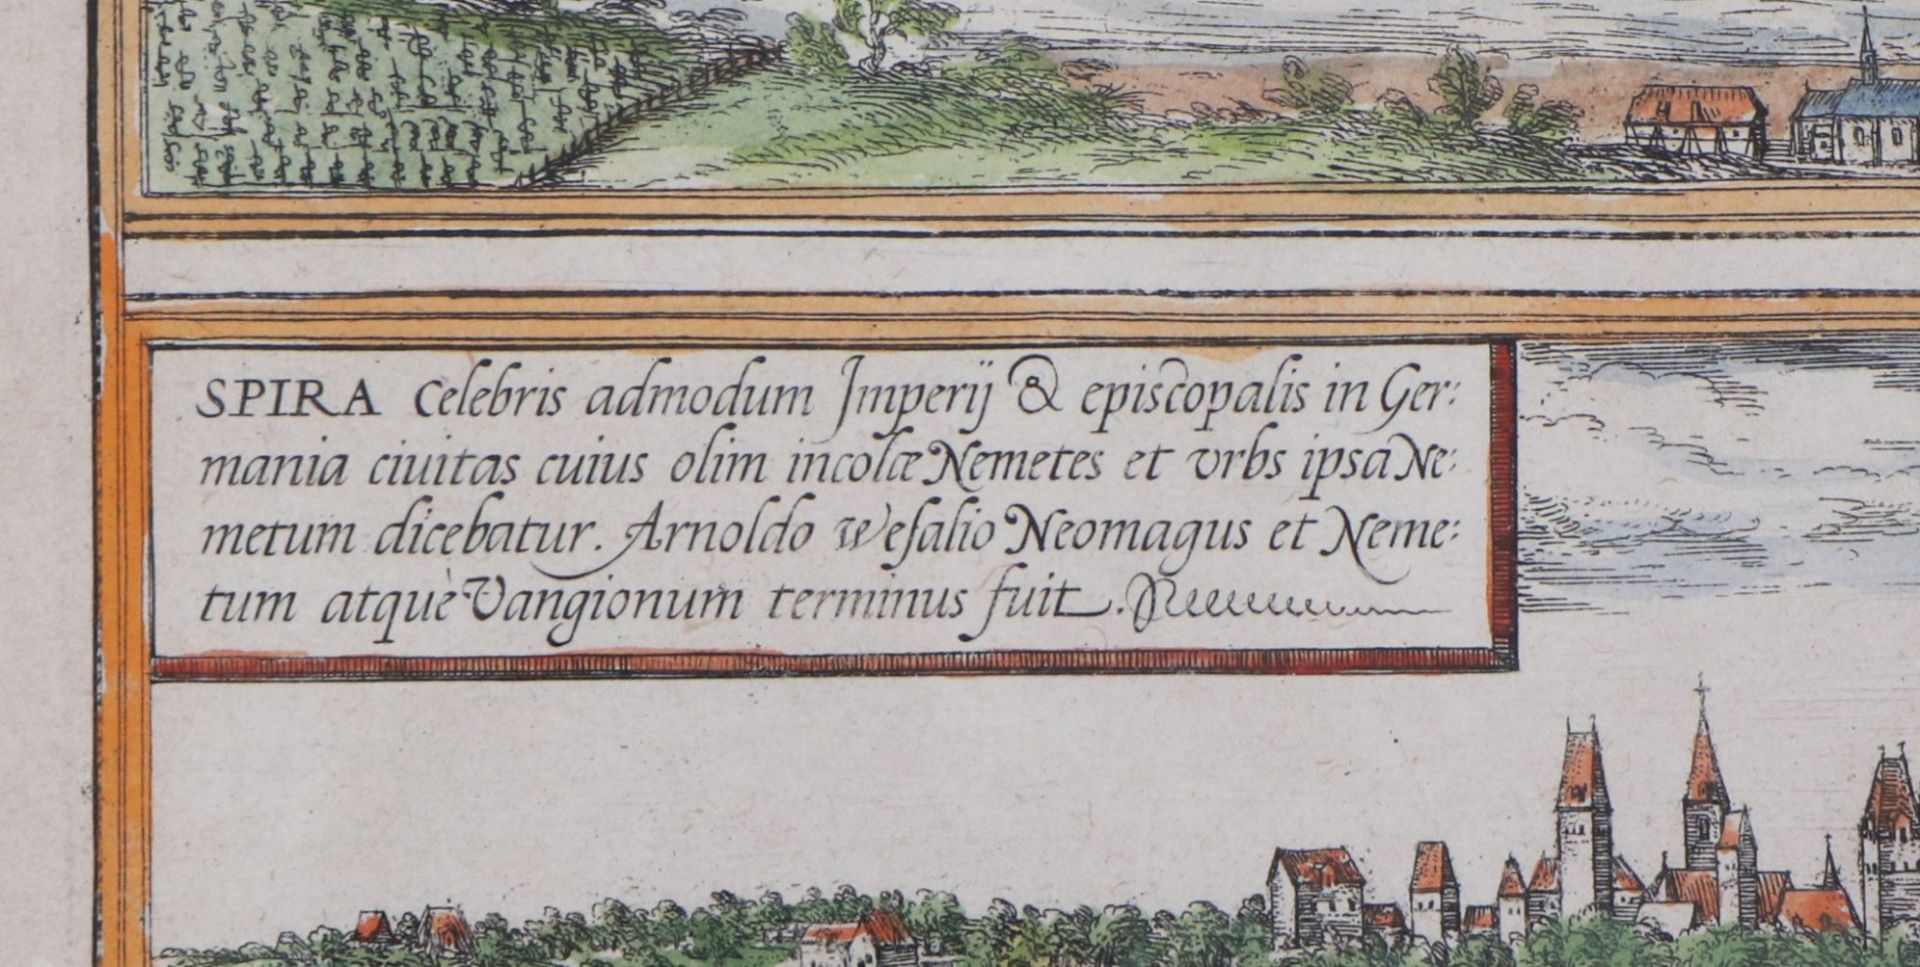 SPIRA Celebris admodum Imperij & episcopalis in Ger:
mania ciuitas cuius olim incolæ Nemetes et vrbs ipsa Ne:
metum dicebatur. Arnoldo Wesalio Neomagus et Neme:
tum atque Vangionum terminus fuit.